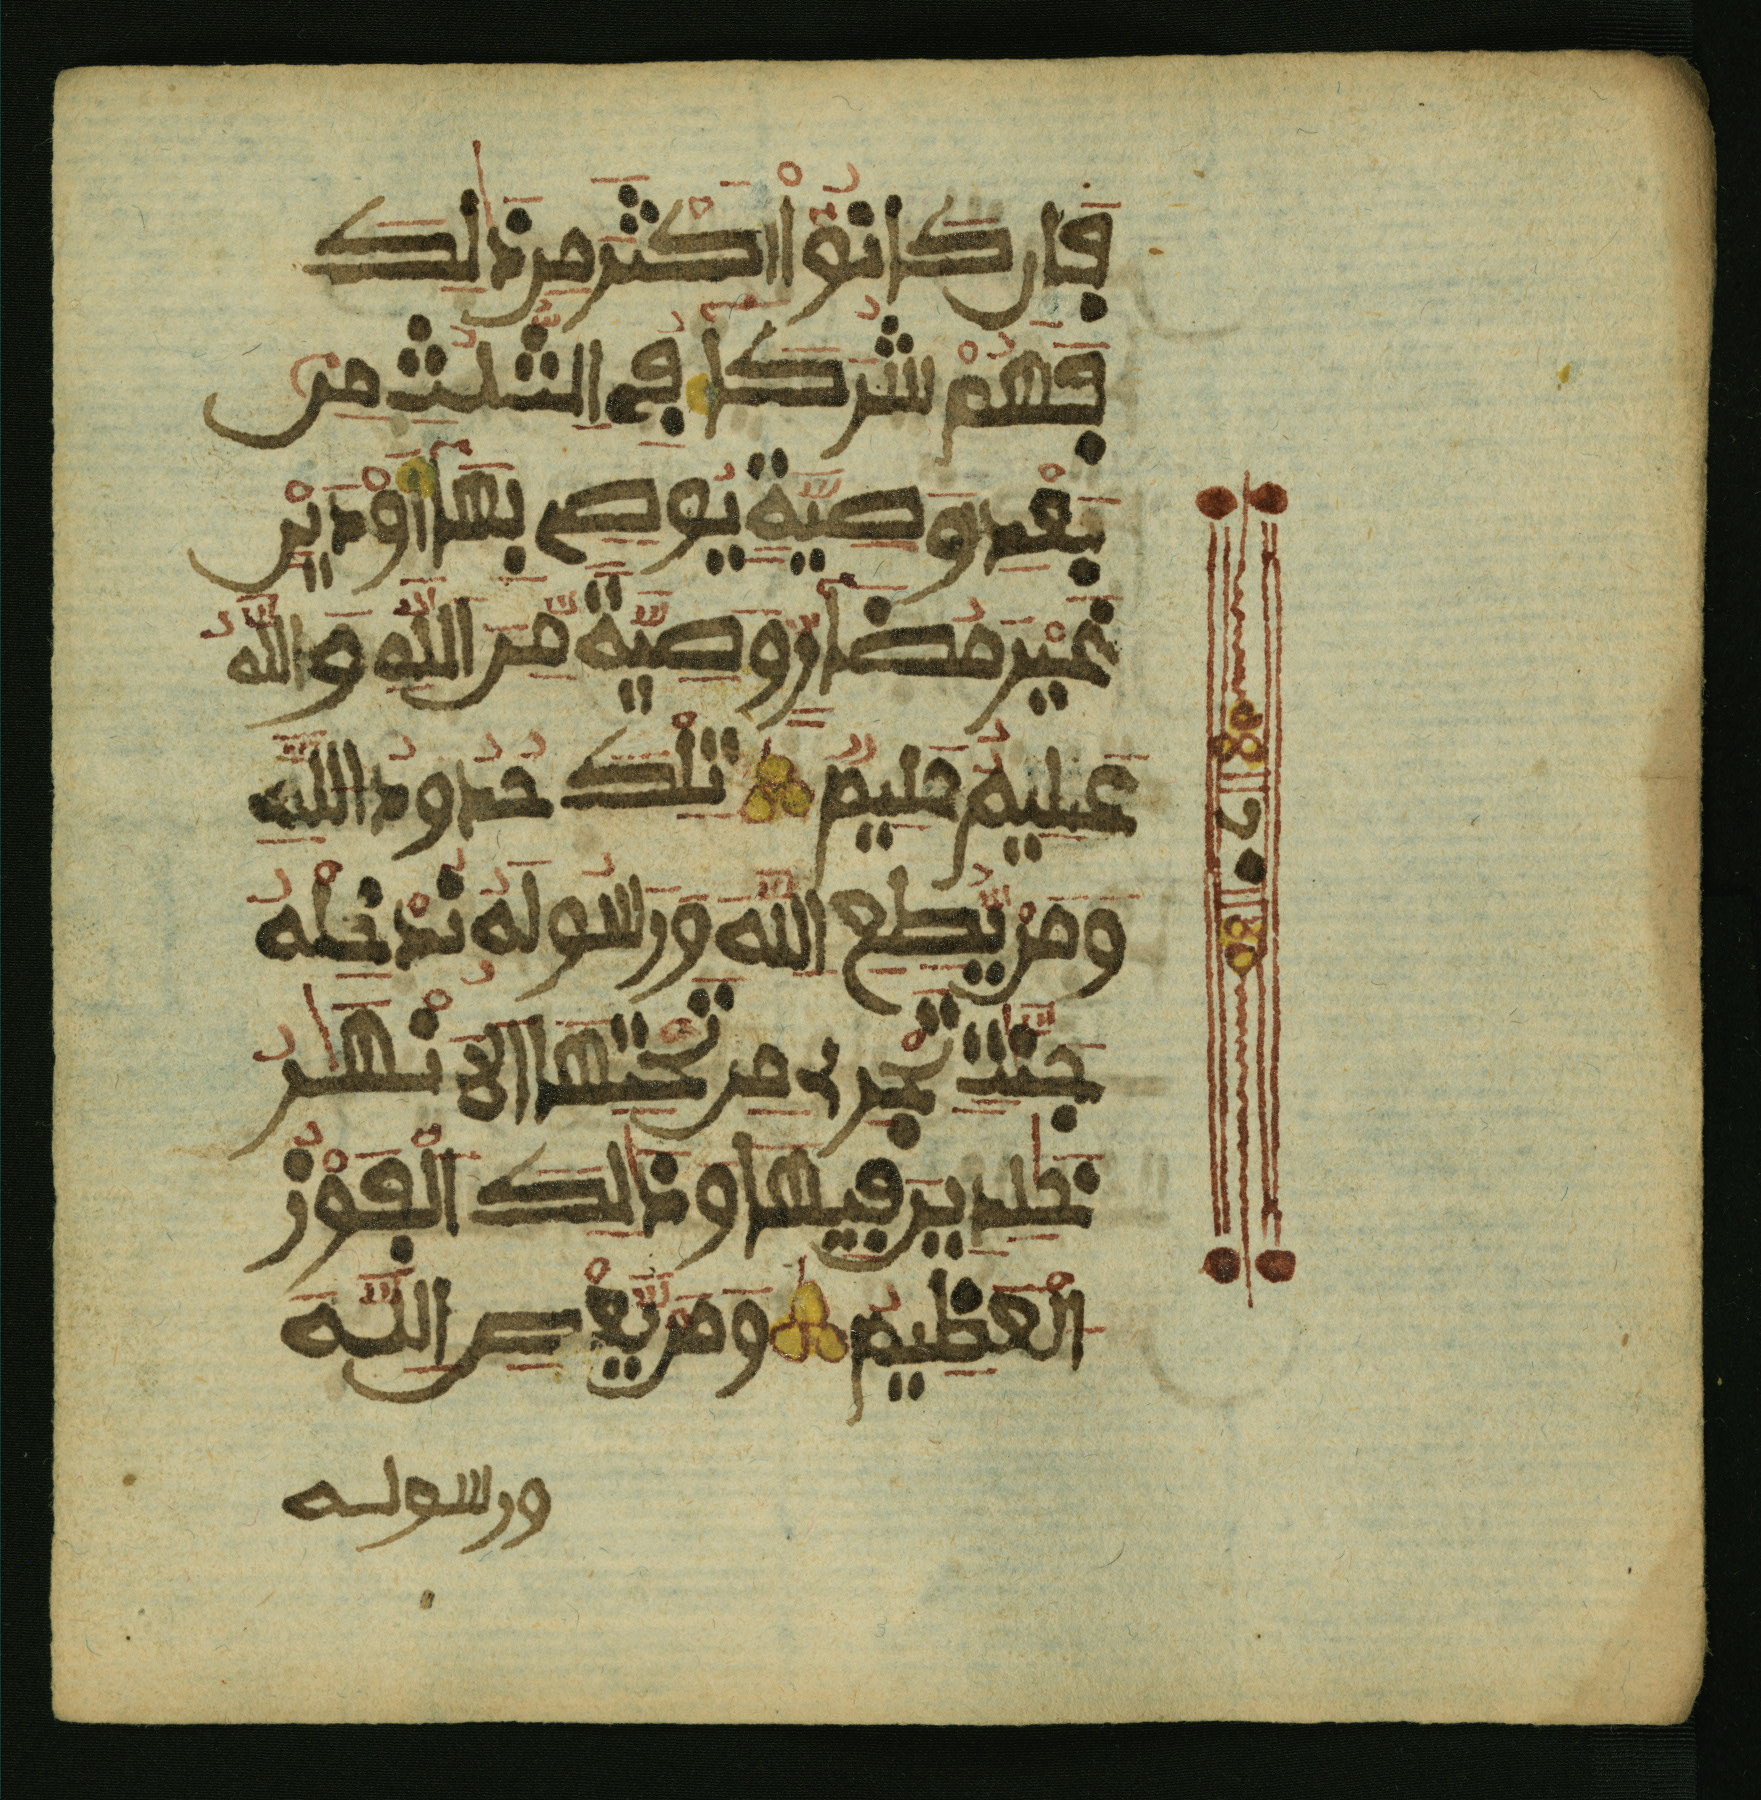 فَإِن كَانُوٓا۟ أَكْثَرَ مِن ذَٰلِكَ
فَهُمْ شُرَكَآءُ فِى الثُّلُثِ مِن
بَعْدِ وَصِيَّةٍ يُوصِى بِهَآ أَوْ دَيْنٍ
غَيْرَ مُضَآرٍّ وَصِيَّةً مِّنَ اللَّهِ وَاللَّهُ
عَلِيمٌ حَلِيمٌ تِلْكَ حُدُودُ اللَّهِ
وَمَنْ يُّطِعِ اللَّهَ وَرَسُولَهُ نُدْخِلْهُ
جَنَّٰتٍ تَجْرِى مِن تَحْتِهَا الْأَنْهَٰرُ
خَٰلِدِينَ فِيهَا وَذَٰلِكَ الْفَوْزُ
الْعَظِيمُ وَمَنْ يَّعْصِ اللَّهَ
ورسوله